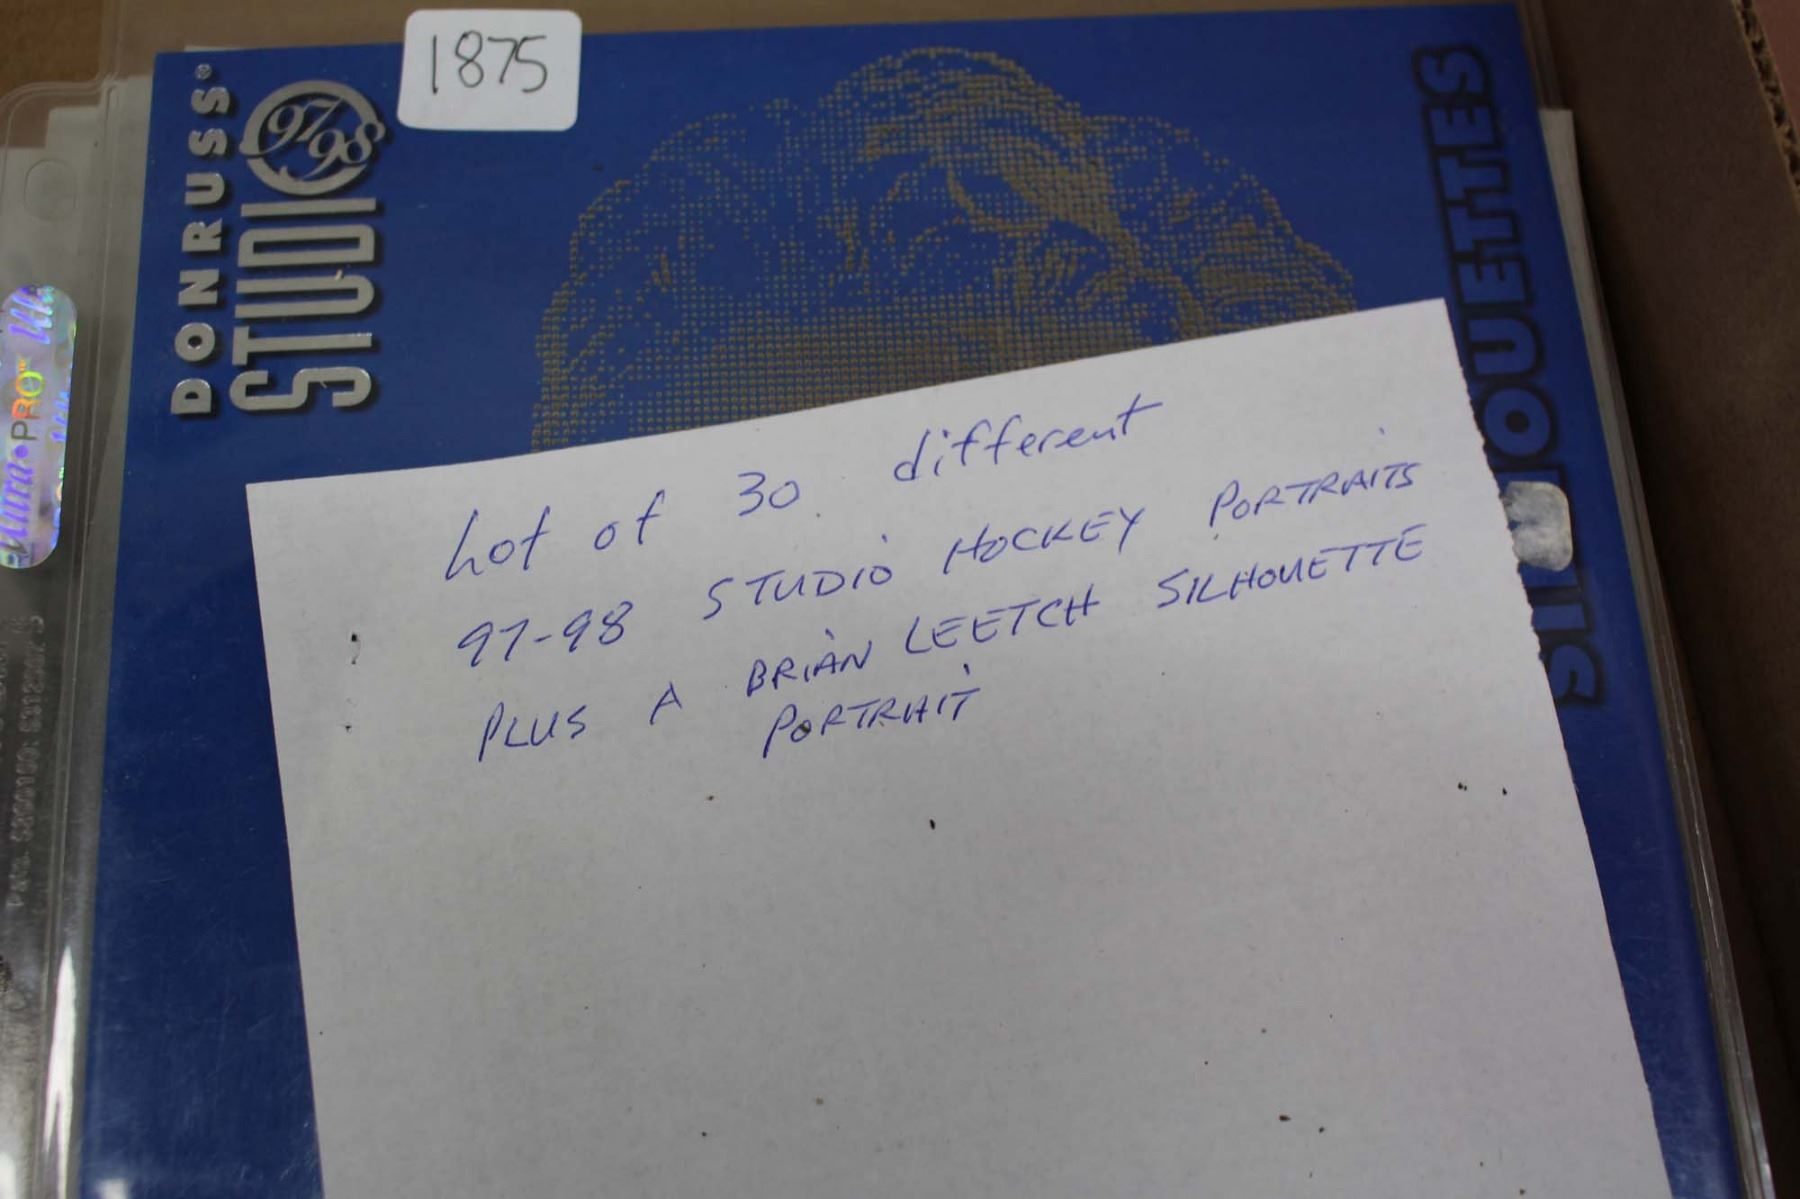 1875
DONRUSS
STUDIO
97 98
SILHOUETTES
Lot of 30 different
97-98 STUDIO HOCKEY PORTRAITS
PLUS A BRIAN LEETCH SILHOUETTE
PORTRAIT
PRO